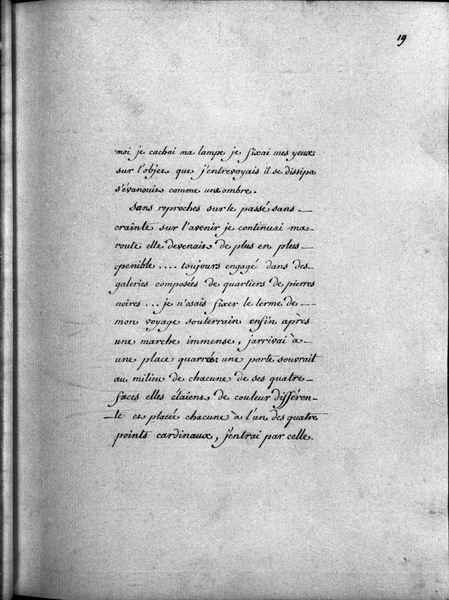 19
moi je cachai ma lampe je fixai mes yeux
sur l'objet que j'entrevoyais il se dissipa
s'évanouit comme une ombre.
Sans reproches sur le passé sans
crainte sur l'avenir je continuai ma
route elle devenais de plus en plus
penible .... toujours engagé dans des
galeries composées de quartiers de pierres
noires ... je n'osais fixer le terme de
mon voyage souterrain enfin après
une marche immense, j'arrivai à
une place quarrée une porte souvrait
au milieu de chacune de ses quatre
faces elles étaient de couleur différen-
te et placée chacune à l'un des quatre
points cardinaux, j'entrai par celle